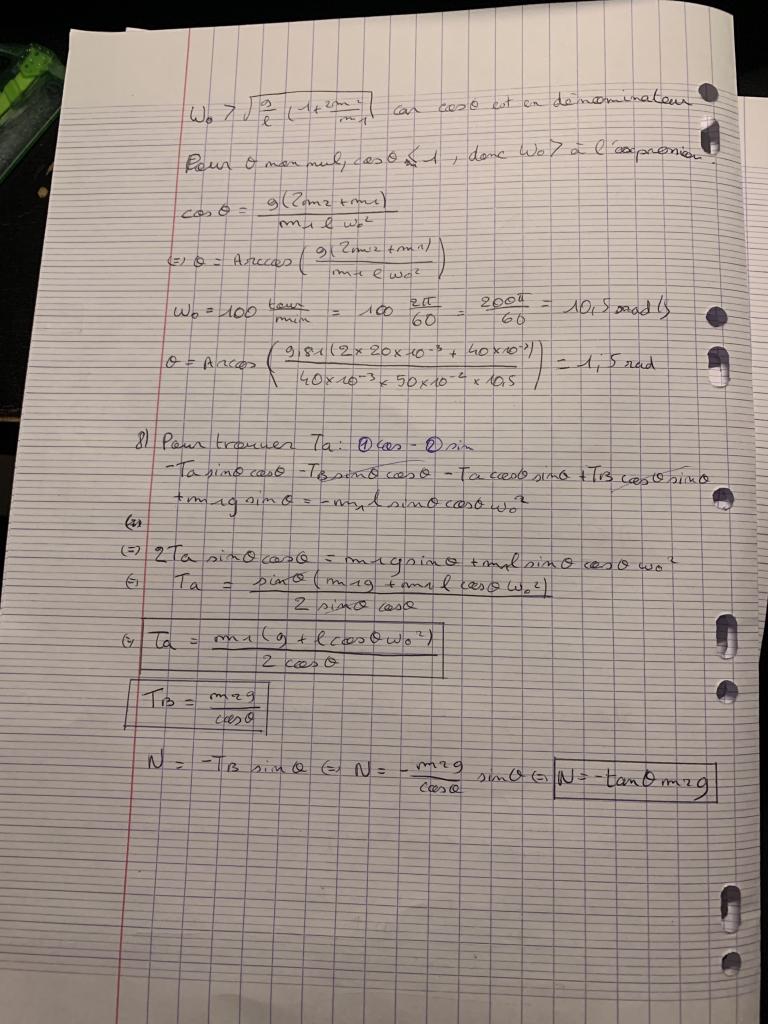 ω₀ > √(g/l (1 + 2m₂/m₁)) car cosθ est en dénominateur
Pour θ non nul, cosθ ≤ 1, donc ω₀ > à l'expression.
cosθ = g(2m₂ + m₁) / m₁ l ω₀²
(=) θ = Arccos( g(2m₂ + m₁) / m₁ l ω₀² )
ω₀ = 100 tour/min = 100 2π/60 = 200π/60 = 10,5 rad/s
θ = Arcos( 9,81(2×20×10⁻³ + 40×10⁻³) / 40×10⁻³ × 50×10⁻² × 10,5 ) = 1,5 rad
8) Pour trouver Ta : ① cos - ② sin
-Ta sinθ cosθ - TB sinθ cosθ - Ta cosθ sinθ + TB cosθ sinθ
+ m₁g sinθ = -m₁ l sinθ cosθ ω₀²
(=) 2Ta sinθ cosθ = m₁g sinθ + m₁l sinθ cosθ ω₀²
(=) Ta = sinθ (m₁g + m₁ l cosθ ω₀²) / 2 sinθ cosθ
(=) Ta = m₁ (g + l cosθ ω₀²) / 2 cosθ
TB = m₂g / cosθ
N = -TB sinθ (=) N = - m₂g/cosθ sinθ (=) N = -tanθ m₂g